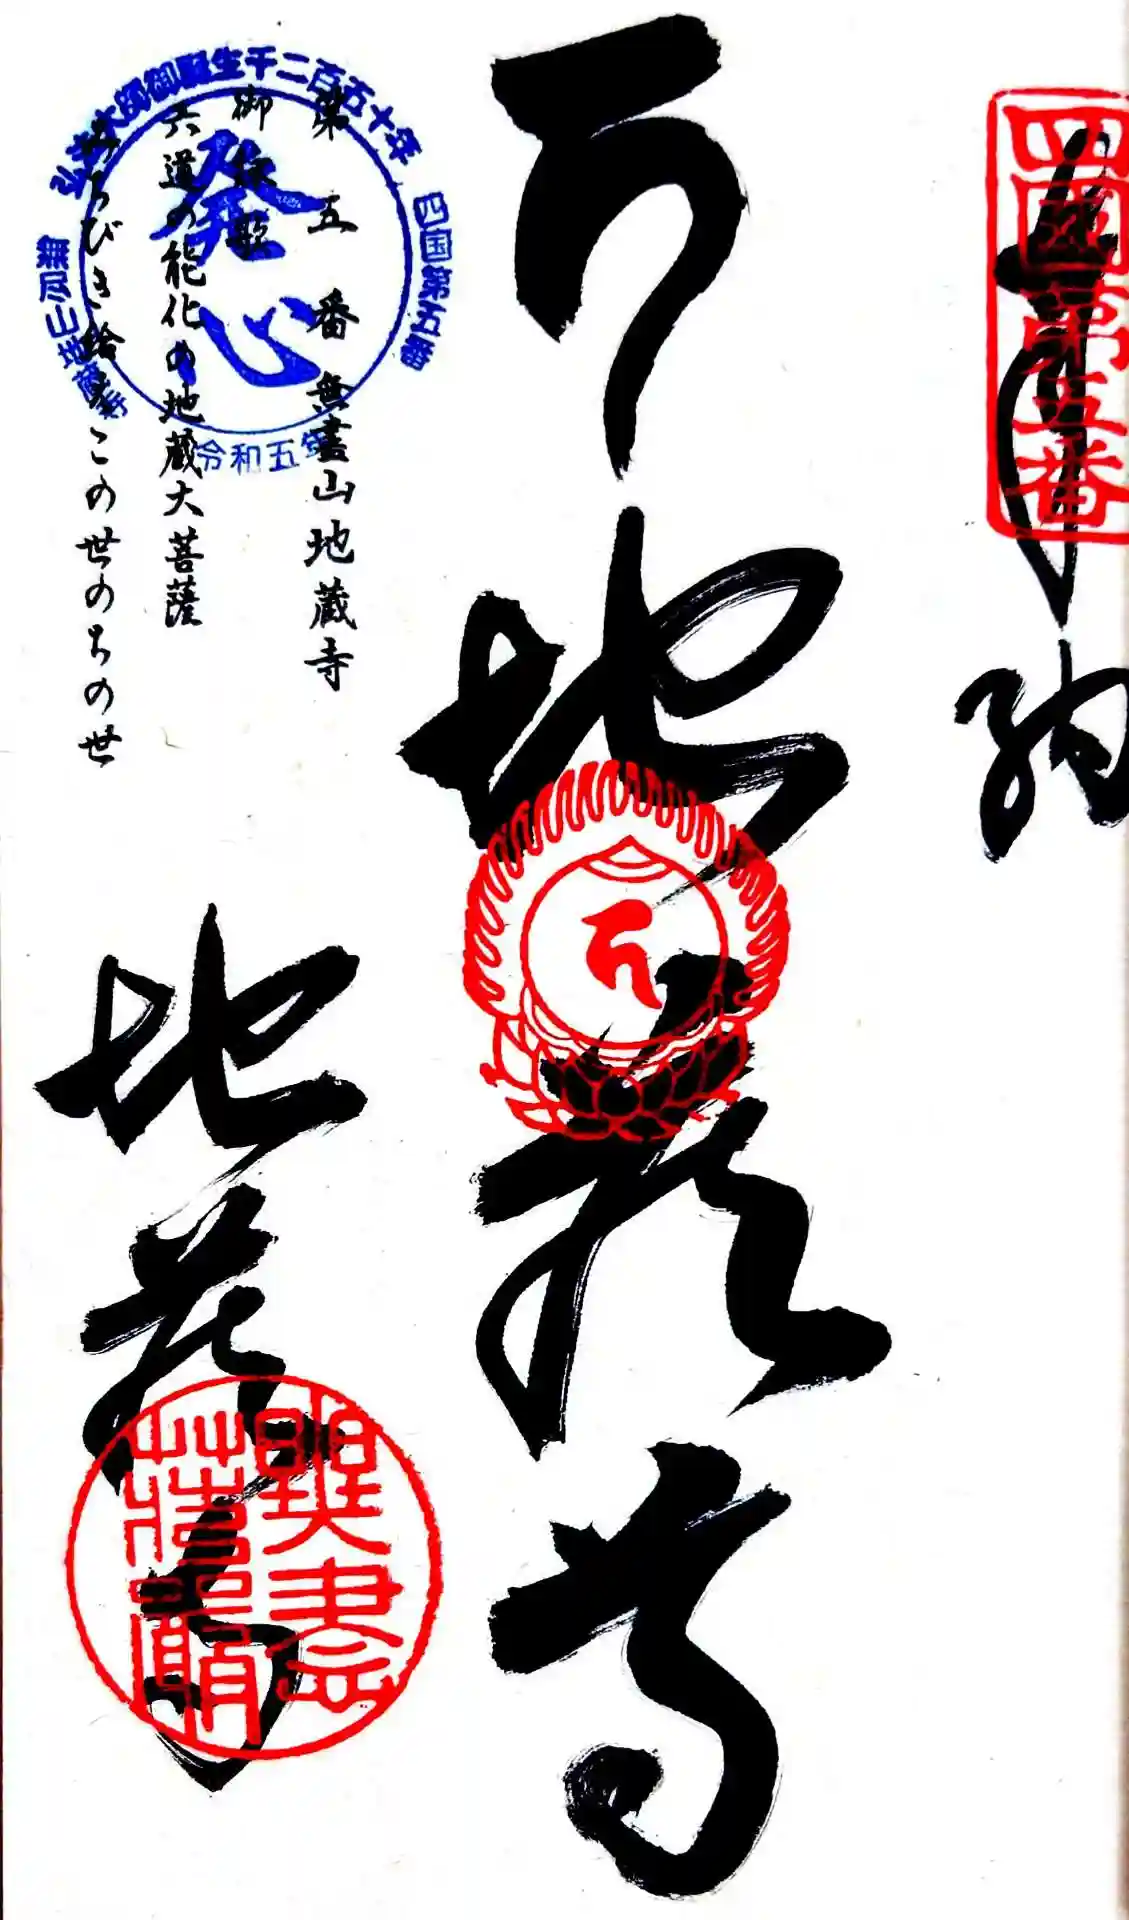 四國第五番
奉納
地蔵尊
第五番 無盡山地蔵寺
御詠歌
六道の能化の地蔵大菩薩
みちびき給えこの世のちの世
弘法大師御誕生千二百五十年
四国第五番
令和五年
無尽山地蔵寺
発心
地蔵寺